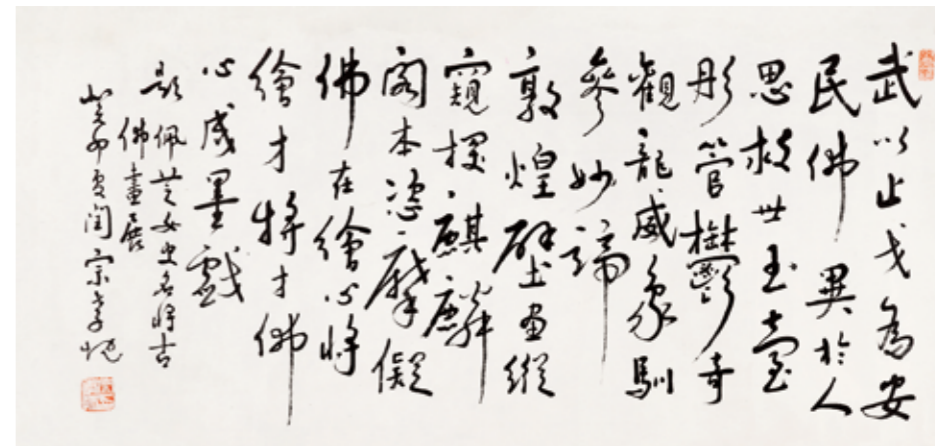 武以止戈為安
民佛異於人
思救世玉臺
彤管鬱奇
觀龍威象馴
參妙諦
敦煌壁畫縱
窺探麒麟
閣本恣摩擬
佛在繪心將
繪才將才佛
心成墨戲
題佩芝女史名將古
佛畫展
癸卯夏閏宗孝忱